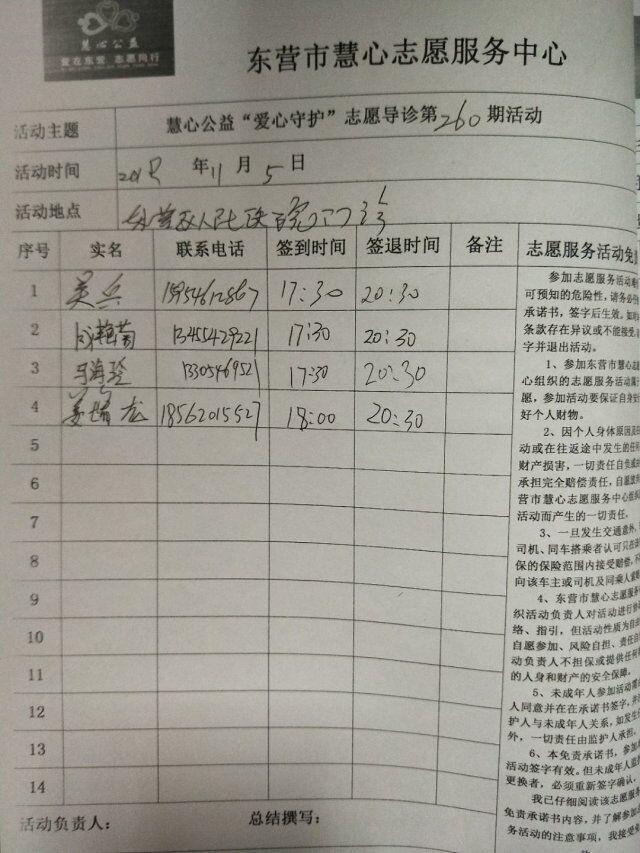 慧心公益
爱在东营 志愿同行
东营市慧心志愿服务中心
活动主题 慧心公益“爱心守护”志愿导诊第260期活动
活动时间 2018年11月5日
活动地点 东营区人民医院门诊
序号 实名 联系电话 签到时间 签退时间 备注 志愿服务活动免责
1 吴兵 15954612867 17:30 20:30
2 成艳菊 13455429221 17:30 20:30
3 马海玲 13305469521 17:30 20:30
4 姜增龙 18562015527 18:00 20:30
5
6
7
8
9
10
11
12
13
14
活动负责人: 总结撰写:
参加志愿服务活动
可预知的危险性,请务必
承诺书,签字后生效。如
条款存在异议或不能接受,
字并退出活动。
1、参加东营市慧心志愿
心组织的志愿服务活动属
愿,参加活动要保证自身安
好个人财物。
2、因个人身体原因及
动或在往返途中发生的任何
财产损害,一切责任自负或
承担完全赔偿责任,自愿放
营市慧心志愿服务中心组织
活动而产生的一切责任。
3、一旦发生交通意外,
司机、同车搭乘者认可只在
保的保险范围内接受赔偿,不
向该车主或司机及同乘人索
4、东营市慧心志愿服务
织活动负责人对活动进行
络、指引,但活动性质为自
自愿参加、风险自担、责任自
动负责人不担保或提供任何
的人身和财产的安全保障。
5、未成年人参加活动需
人同意并在在承诺书签字,并
护人与未成年人关系,如发生
外,一切责任由监护人承担。
6、本免责承诺书,参加
活动签字有效。但未成年人监
更换者,必须重新签字确认。
我已仔细阅读该志愿服务
免责承诺书内容,并了解参加
务活动的注意事项,我接受